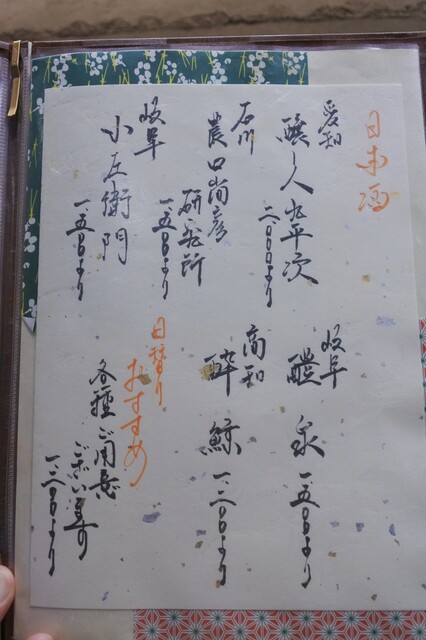 日本酒
愛知
醸し人九平次
二、〇〇〇より
石川
農口尚彦
研究所
一、五〇〇より
岐阜
小左衛門
一、五〇〇より
岐阜
醴泉
一、五〇〇より
高知
酔鯨
一、二〇〇より
日替り
おすすめ
各種ご用意
ございます
一、二〇〇より